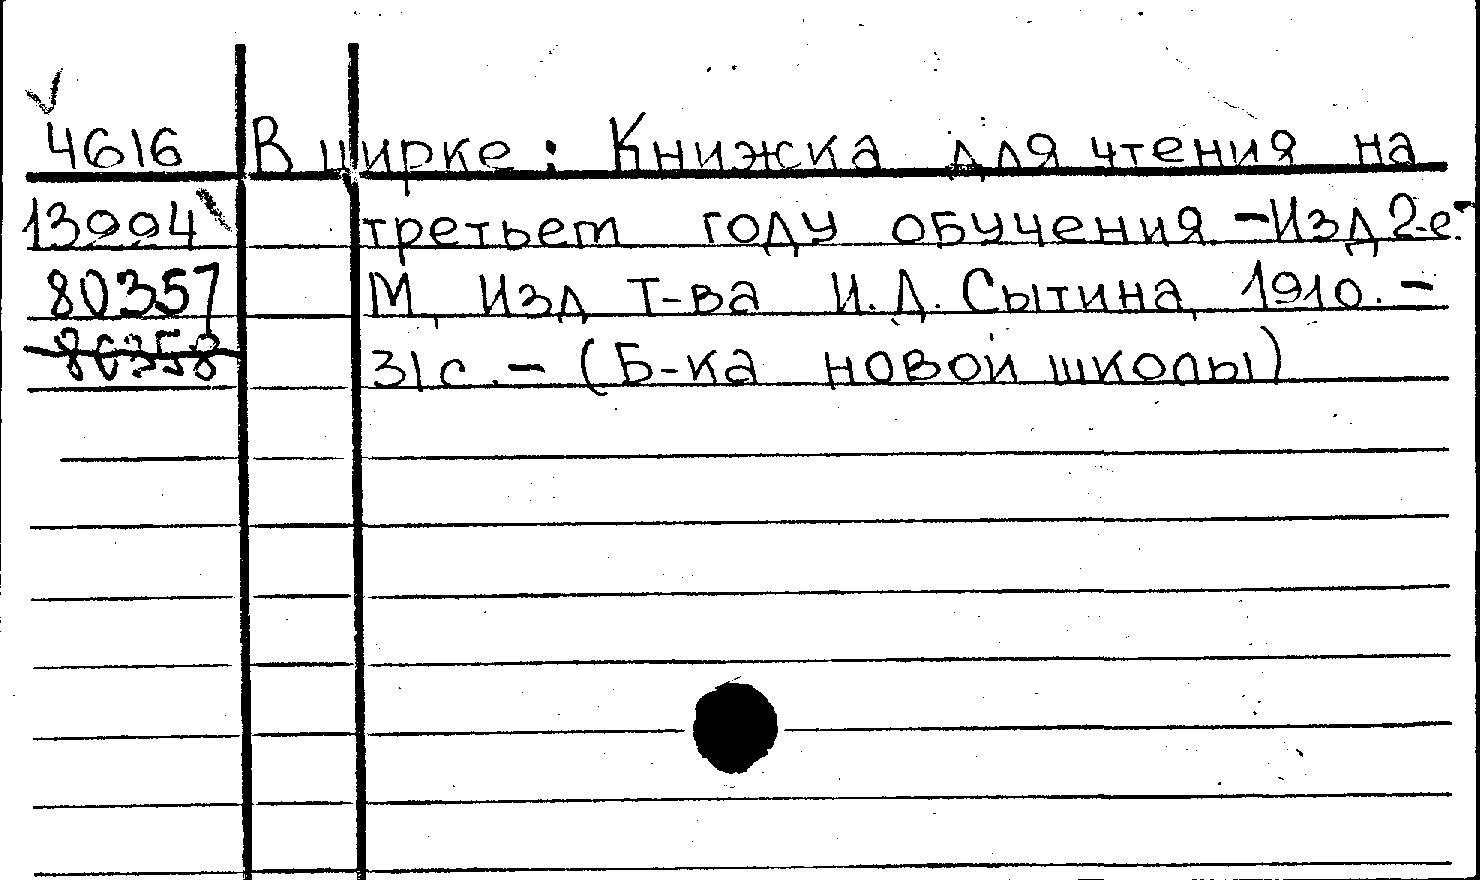 4616 В цирке: Книжка для чтения на
13994 третьем году обучения. - Изд 2-е. -
80357 М, Изд Т-ва И.Д. Сытина, 1910. -
80358 31 с. - (Б-ка новой школы)